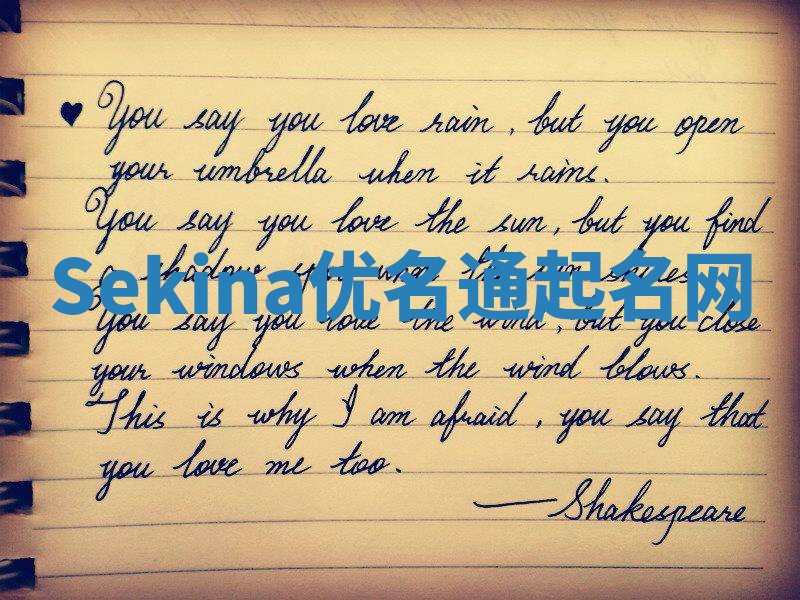 ♥ You say you love rain, but you open
your umbrella when it rains.
You say you love the sun, but you find
a shadow spot when the sun shines.
Sekina优名通起名网
You say you love the wind, but you close
your windows when the wind blows.
This is why I am afraid, you say that
you love me too.
— Shakespeare